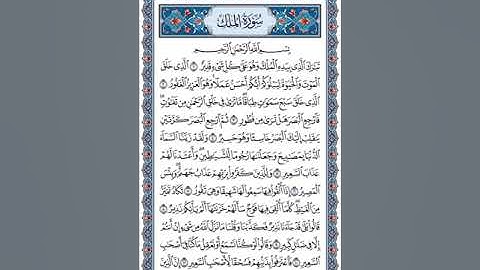 سُورَةُ الْمُلْكِ
بِسْمِ اللَّهِ الرَّحْمَٰنِ الرَّحِيمِ
تَبَارَكَ الَّذِي بِيَدِهِ الْمُلْكُ وَهُوَ عَلَىٰ كُلِّ شَيْءٍ قَدِيرٌ ١ الَّذِي خَلَقَ
الْمَوْتَ وَالْحَيَاةَ لِيَبْلُوَكُمْ أَيُّكُمْ أَحْسَنُ عَمَلًا وَهُوَ الْعَزِيزُ الْغَفُورُ ٢
الَّذِي خَلَقَ سَبْعَ سَمَاوَاتٍ طِبَاقًا مَّا تَرَىٰ فِي خَلْقِ الرَّحْمَٰنِ مِن تَفَاوُتٍ
فَارْجِعِ الْبَصَرَ هَلْ تَرَىٰ مِن فُطُورٍ ٣ ثُمَّ ارْجِعِ الْبَصَرَ كَرَّتَيْنِ
يَنقَلِبْ إِلَيْكَ الْبَصَرُ خَاسِئًا وَهُوَ حَسِيرٌ ٤ وَلَقَدْ زَيَّنَّا السَّمَاءَ
الدُّنْيَا بِمَصَابِيحَ وَجَعَلْنَاهَا رُجُومًا لِّلشَّيَاطِينِ وَأَعْتَدْنَا لَهُمْ
عَذَابَ السَّعِيرِ ٥ وَلِلَّذِينَ كَفَرُوا بِرَبِّهِمْ عَذَابُ جَهَنَّمَ وَبِئْسَ
الْمَصِيرُ ٦ إِذَا أُلْقُوا فِيهَا سَمِعُوا لَهَا شَهِيقًا وَهِيَ تَفُورُ ٧ تَكَادُ تَمَيَّزُ
مِنَ الْغَيْظِ كُلَّمَا أُلْقِيَ فِيهَا فَوْجٌ سَأَلَهُمْ خَزَنَتُهَا أَلَمْ يَأْتِكُمْ نَذِيرٌ ٨
قَالُوا بَلَىٰ قَدْ جَاءَنَا نَذِيرٌ فَكَذَّبْنَا وَقُلْنَا مَا نَزَّلَ اللَّهُ مِن شَيْءٍ إِنْ أَنتُمْ
إِلَّا فِي ضَلَالٍ كَبِيرٍ ٩ وَقَالُوا لَوْ كُنَّا نَسْمَعُ أَوْ نَعْقِلُ مَا كُنَّا فِي أَصْحَابِ
السَّعِيرِ ١٠ فَاعْتَرَفُوا بِذَنبِهِمْ فَسُحْقًا لِّأَصْحَابِ السَّعِيرِ ١١ إِنَّ الَّذِينَ